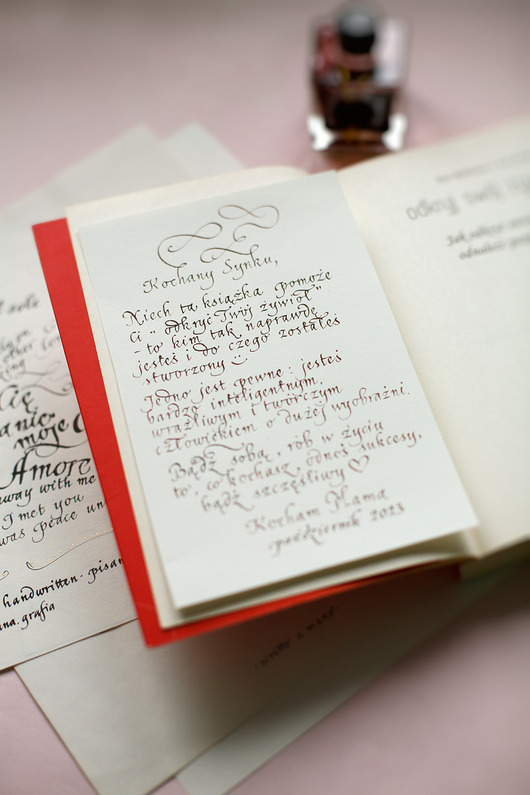 Kochany Synku,
Niech ta książka pomoże
Ci „odkryć Twój żywioł”
- to kim tak naprawdę
jesteś i do czego zostałeś
stworzony :)
Jedno jest pewne: jesteś
bardzo inteligentnym,
wrażliwym i twórczym
człowiekiem o dużej wyobraźni.
Bądź sobą, rób w życiu
to, co kochasz, odnoś sukcesy,
bądź szczęśliwy ♡
Kocham Mama
październik 2023
Cię
a nic
moje
Amore
away with me
I met you
was peace
handwritten. pisan
na.grafia
odkryj swój żywioł